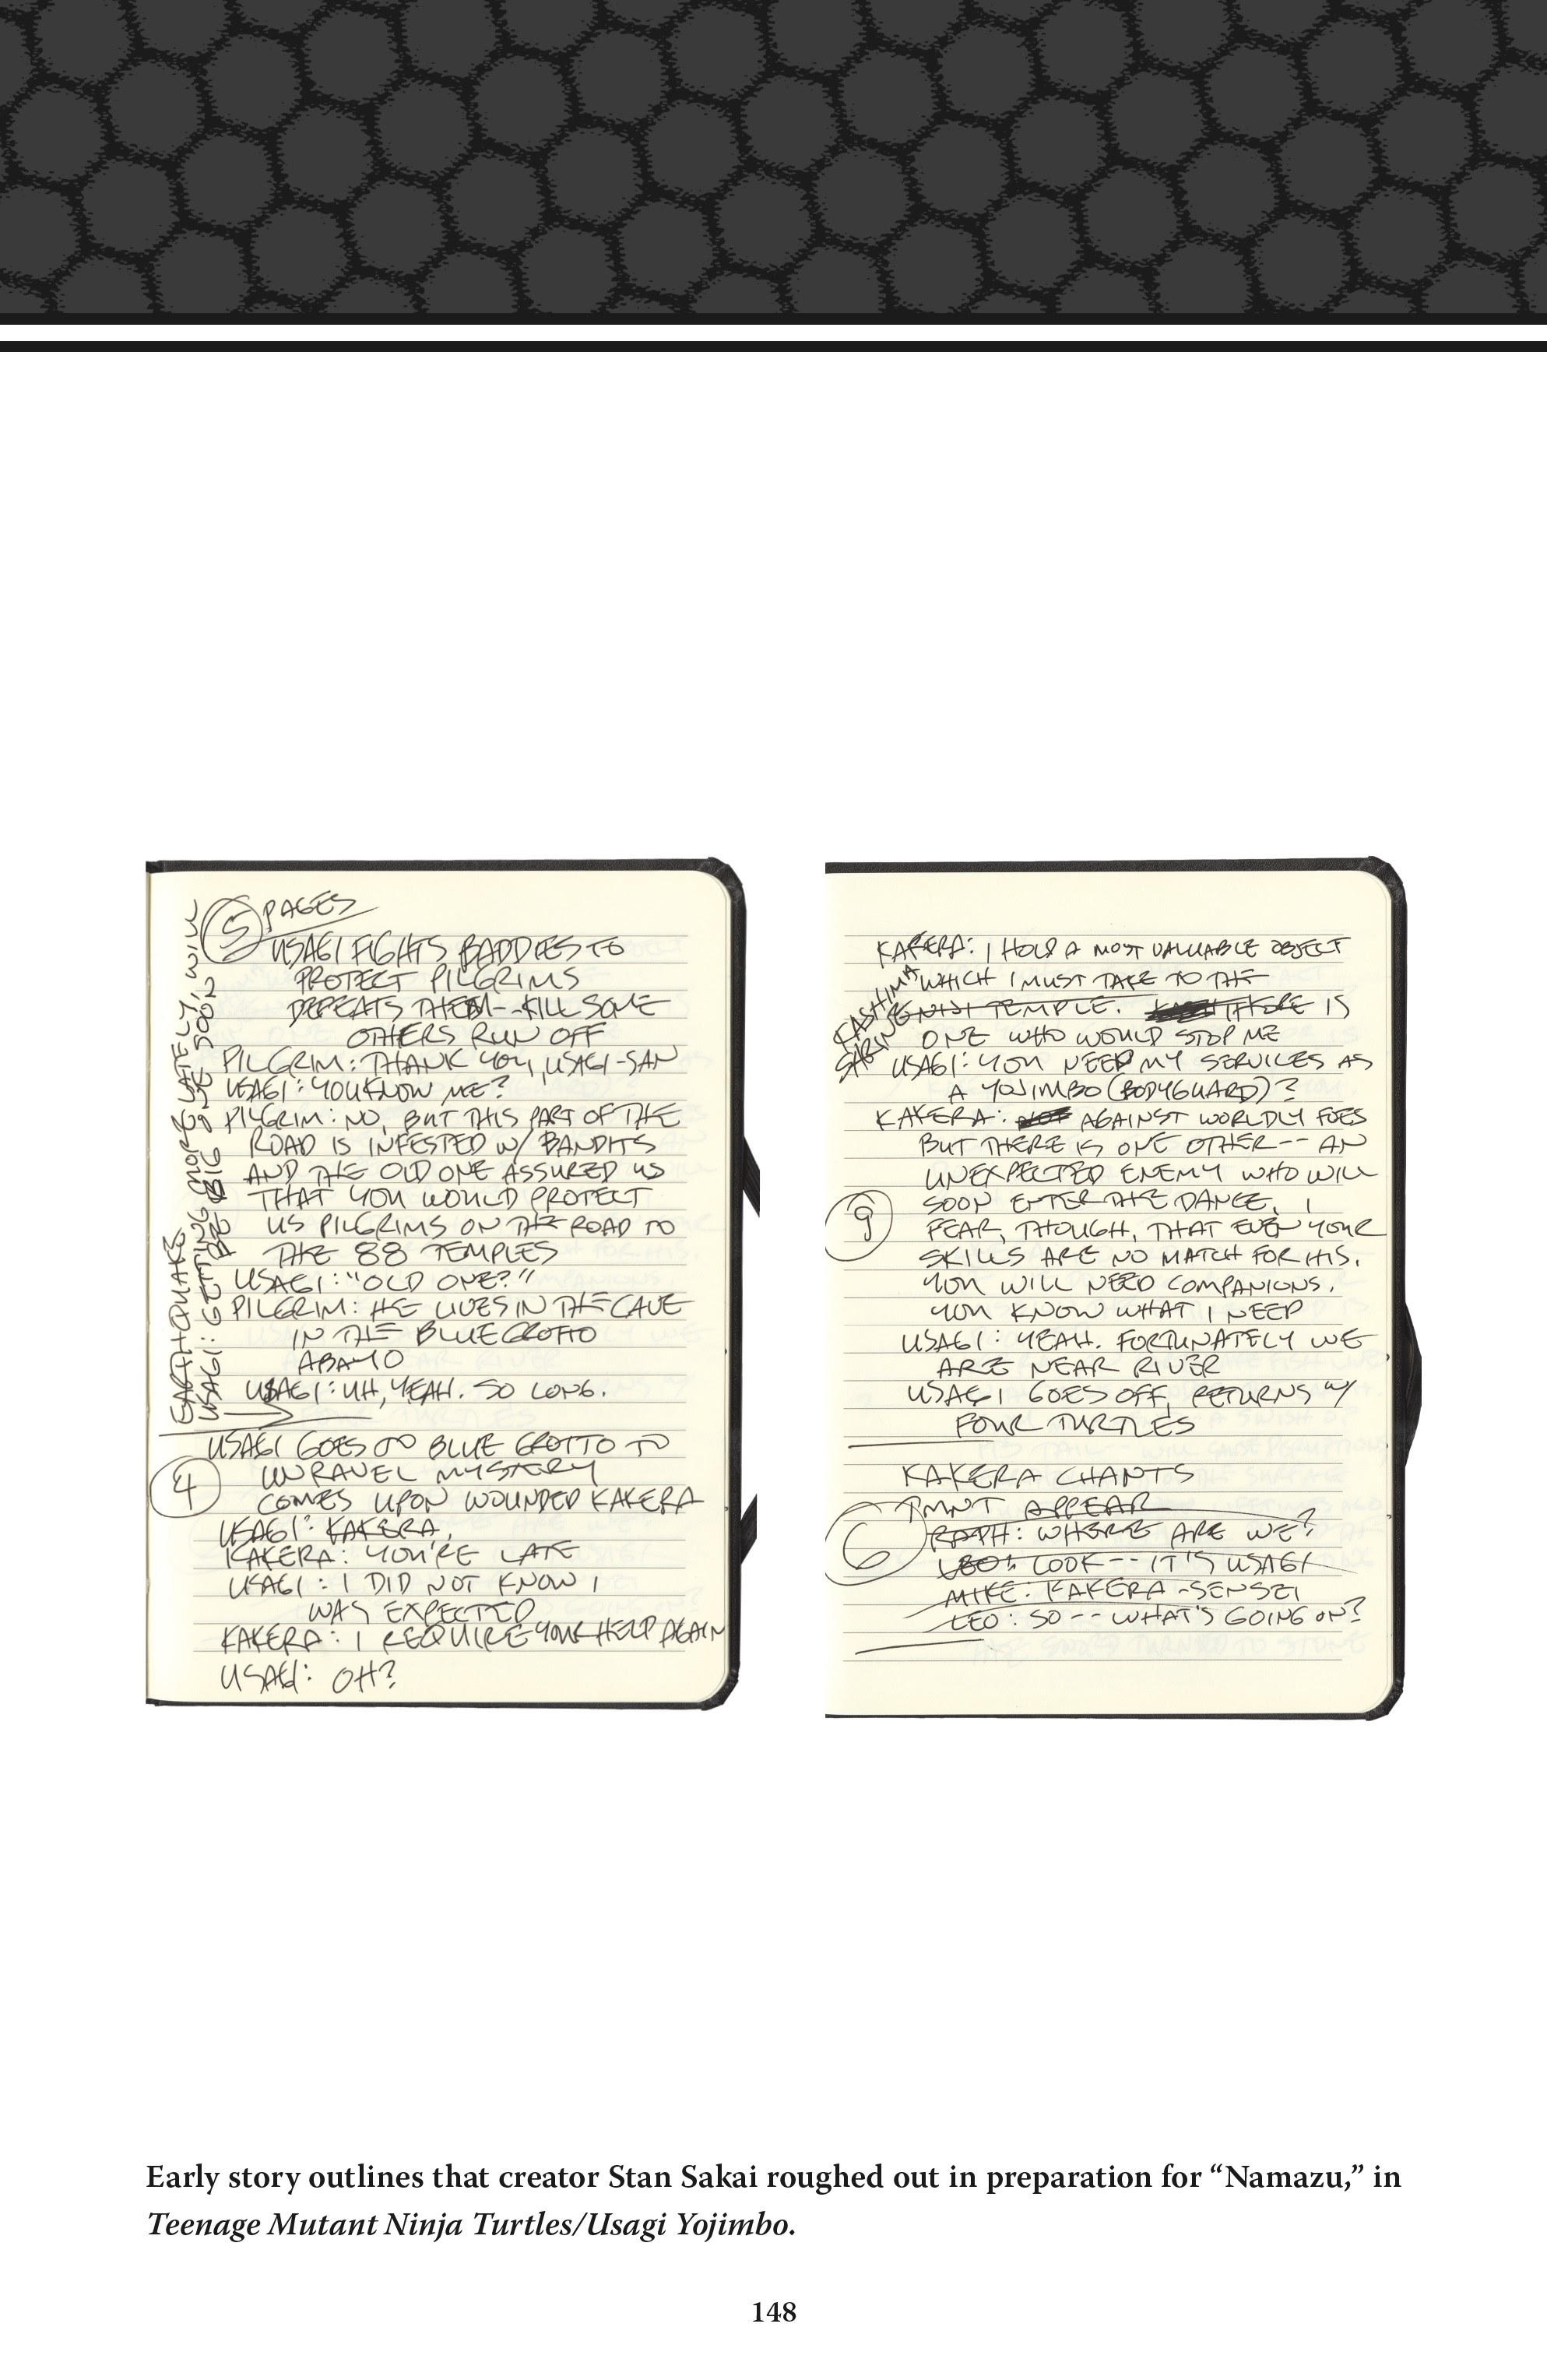 5 PAGES
USAGI FIGHTS BADDIES TO
PROTECT PILGRIMS
DEFEATS THEM--KILL SOME
OTHERS RUN OFF
PILGRIM: THANK YOU, USAGI-SAN
USAGI: YOU KNOW ME?
PILGRIM: NO, BUT THIS PART OF THE
ROAD IS INFESTED W/ BANDITS
AND THE OLD ONE ASSURED US
THAT YOU WOULD PROTECT
US PILGRIMS ON THE ROAD TO
THE 88 TEMPLES
USAGI: "OLD ONE?"
PILGRIM: HE LIVES IN THE CAVE
IN THE BLUE GROTTO
ABAYO
USAGI: UH, YEAH. SO LONG.
EARTHQUAKE
USAGI: GETTING MORE LATELY, WILL
BE BIG ONE SOON
USAGI GOES TO BLUE GROTTO TO
4 UNRAVEL MYSTERY
COMES UPON WOUNDED KAKERA
USAGI: KAKERA,
KAKERA: YOU'RE LATE
USAGI: I DID NOT KNOW I
WAS EXPECTED
KAKERA: I REQUIRE YOUR HELP AGAIN
USAGI: OH?
KAKERA: I HOLD A MOST VALUABLE OBJECT
WHICH I MUST TAKE TO THE
KASHIMA
SHRINE
TEMPLE. THERE IS
ONE WHO WOULD STOP ME
USAGI: YOU NEED MY SERVICES AS
A YOJIMBO (BODYGUARD)?
KAKERA: NOT AGAINST WORLDLY FOES
BUT THERE IS ONE OTHER -- AN
UNEXPECTED ENEMY WHO WILL
SOON ENTER THE DANCE. I
9 FEAR, THOUGH, THAT EVEN YOUR
SKILLS ARE NO MATCH FOR HIS.
YOU WILL NEED COMPANIONS.
YOU KNOW WHAT I NEED
USAGI: YEAH. FORTUNATELY WE
ARE NEAR RIVER
USAGI GOES OFF, RETURNS W/
FOUR TURTLES
KAKERA CHANTS
TMNT APPEAR
6 RAPH: WHERE ARE WE?
LEO: LOOK -- IT'S USAGI
MIKE: KAKERA-SENSEI
LEO: SO -- WHAT'S GOING ON?
Early story outlines that creator Stan Sakai roughed out in preparation for “Namazu,” in
Teenage Mutant Ninja Turtles/Usagi Yojimbo.
148